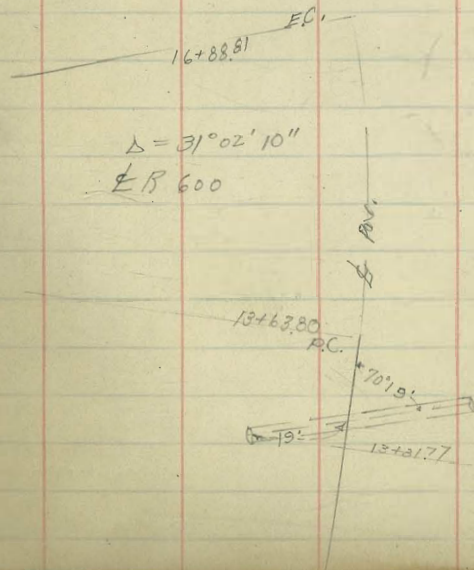 E.C.
16+88.81
Δ = 31°02'10"
℄ R 600
℄ Pav.
13+63.80
P.C.
70°19'
19'
13+31.77